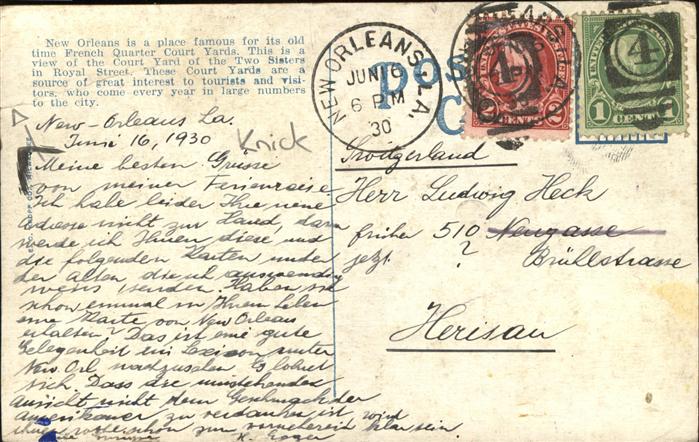 New Orleans is a place famous for its old
time French Quarter Court Yards. This is a
view of the Court Yard of the Two Sisters
in Royal Street. These Court Yards are a
source of great interest to tourists and visi-
tors, who come every year in large numbers
to the city.
NEW ORLEANS, LA.
JUN 16
6 PM
30
POS
C
2 CENTS 2
1 CENT 1
New-Orleans La.
Juni 16, 1930
Knick
Meine besten Grüsse
von meiner Ferienreise
Ich habe leider Ihre neue
Adresse nicht zur Hand, darum
werde ich Ihnen diese und
die folgenden Karten unter
der alten die ich auswendig
weiss senden. Haben sie
schon einmal in Ihrem Leben
eine Karte von New Orleans
erhalten? Das ist eine gute
Gelegenheit im Lexicon unter
New Orl nachzusehen. Es lohnt
sich. Dass die umstehende
Ansicht nicht dem Geschmack der
Amerikaner zu verdanken ist wird
Ihnen wohl schon zum vorneherein klar sein
Switzerland
Herr Ludwig Heck
früher 510 Neugasse
jetzt ? Brühlstrasse
Herisau